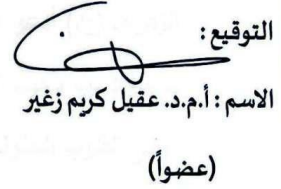 التوقيع :
الاسم : أ.م.د. عقيل كريم زغير
(عضواً)